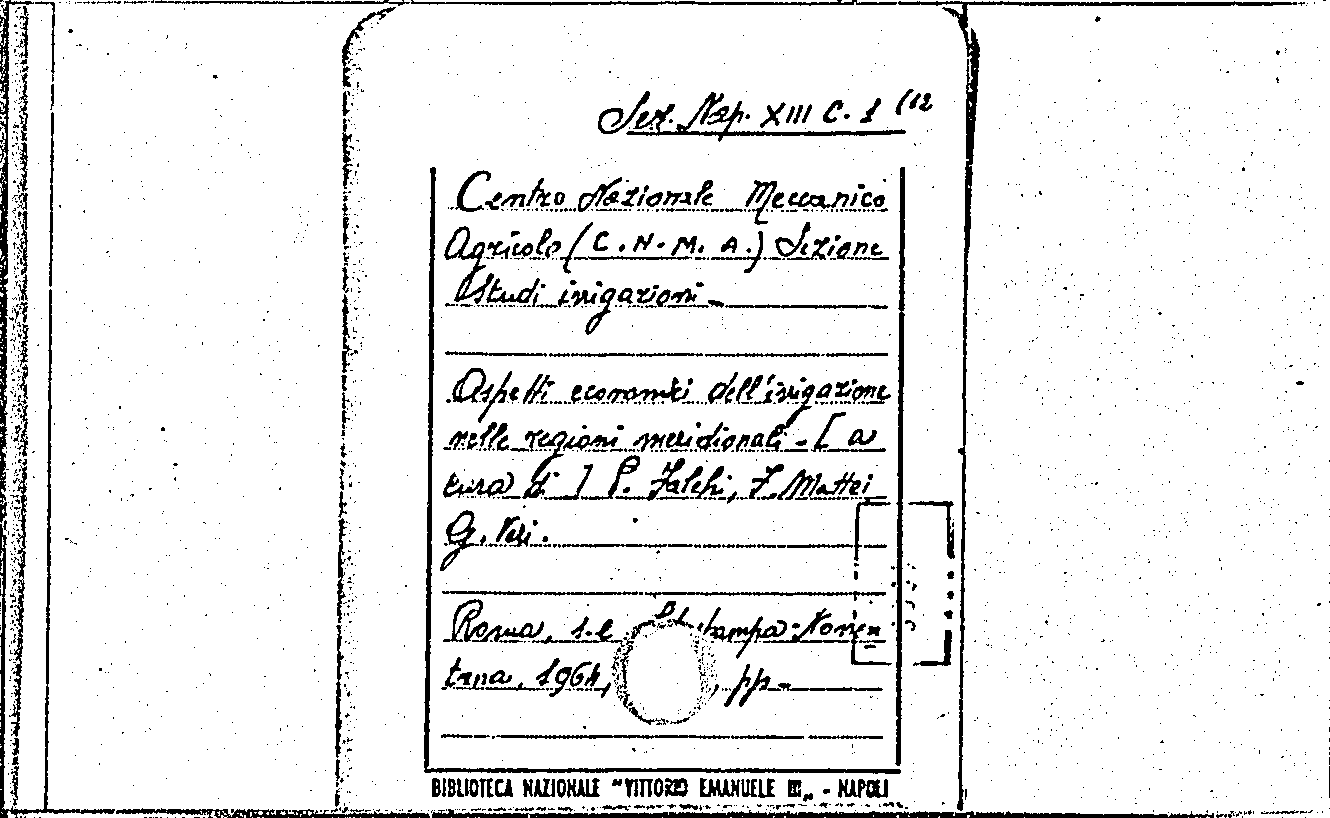 Sez. Nap. XIII C. 1 (12
Centro Nazionale Meccanico
Agricolo (C.N.M.A.) Sezione
Studi irrigazioni -
Aspetti economici dell'irrigazione
nelle regioni meridionali - [a
cura di] P. Falchi, F. Mattei
G.
Roma, s.e. Nomen
tana, 1964, , pp -
BIBLIOTECA NAZIONALE "VITTORIO EMANUELE III„ - NAPOLI